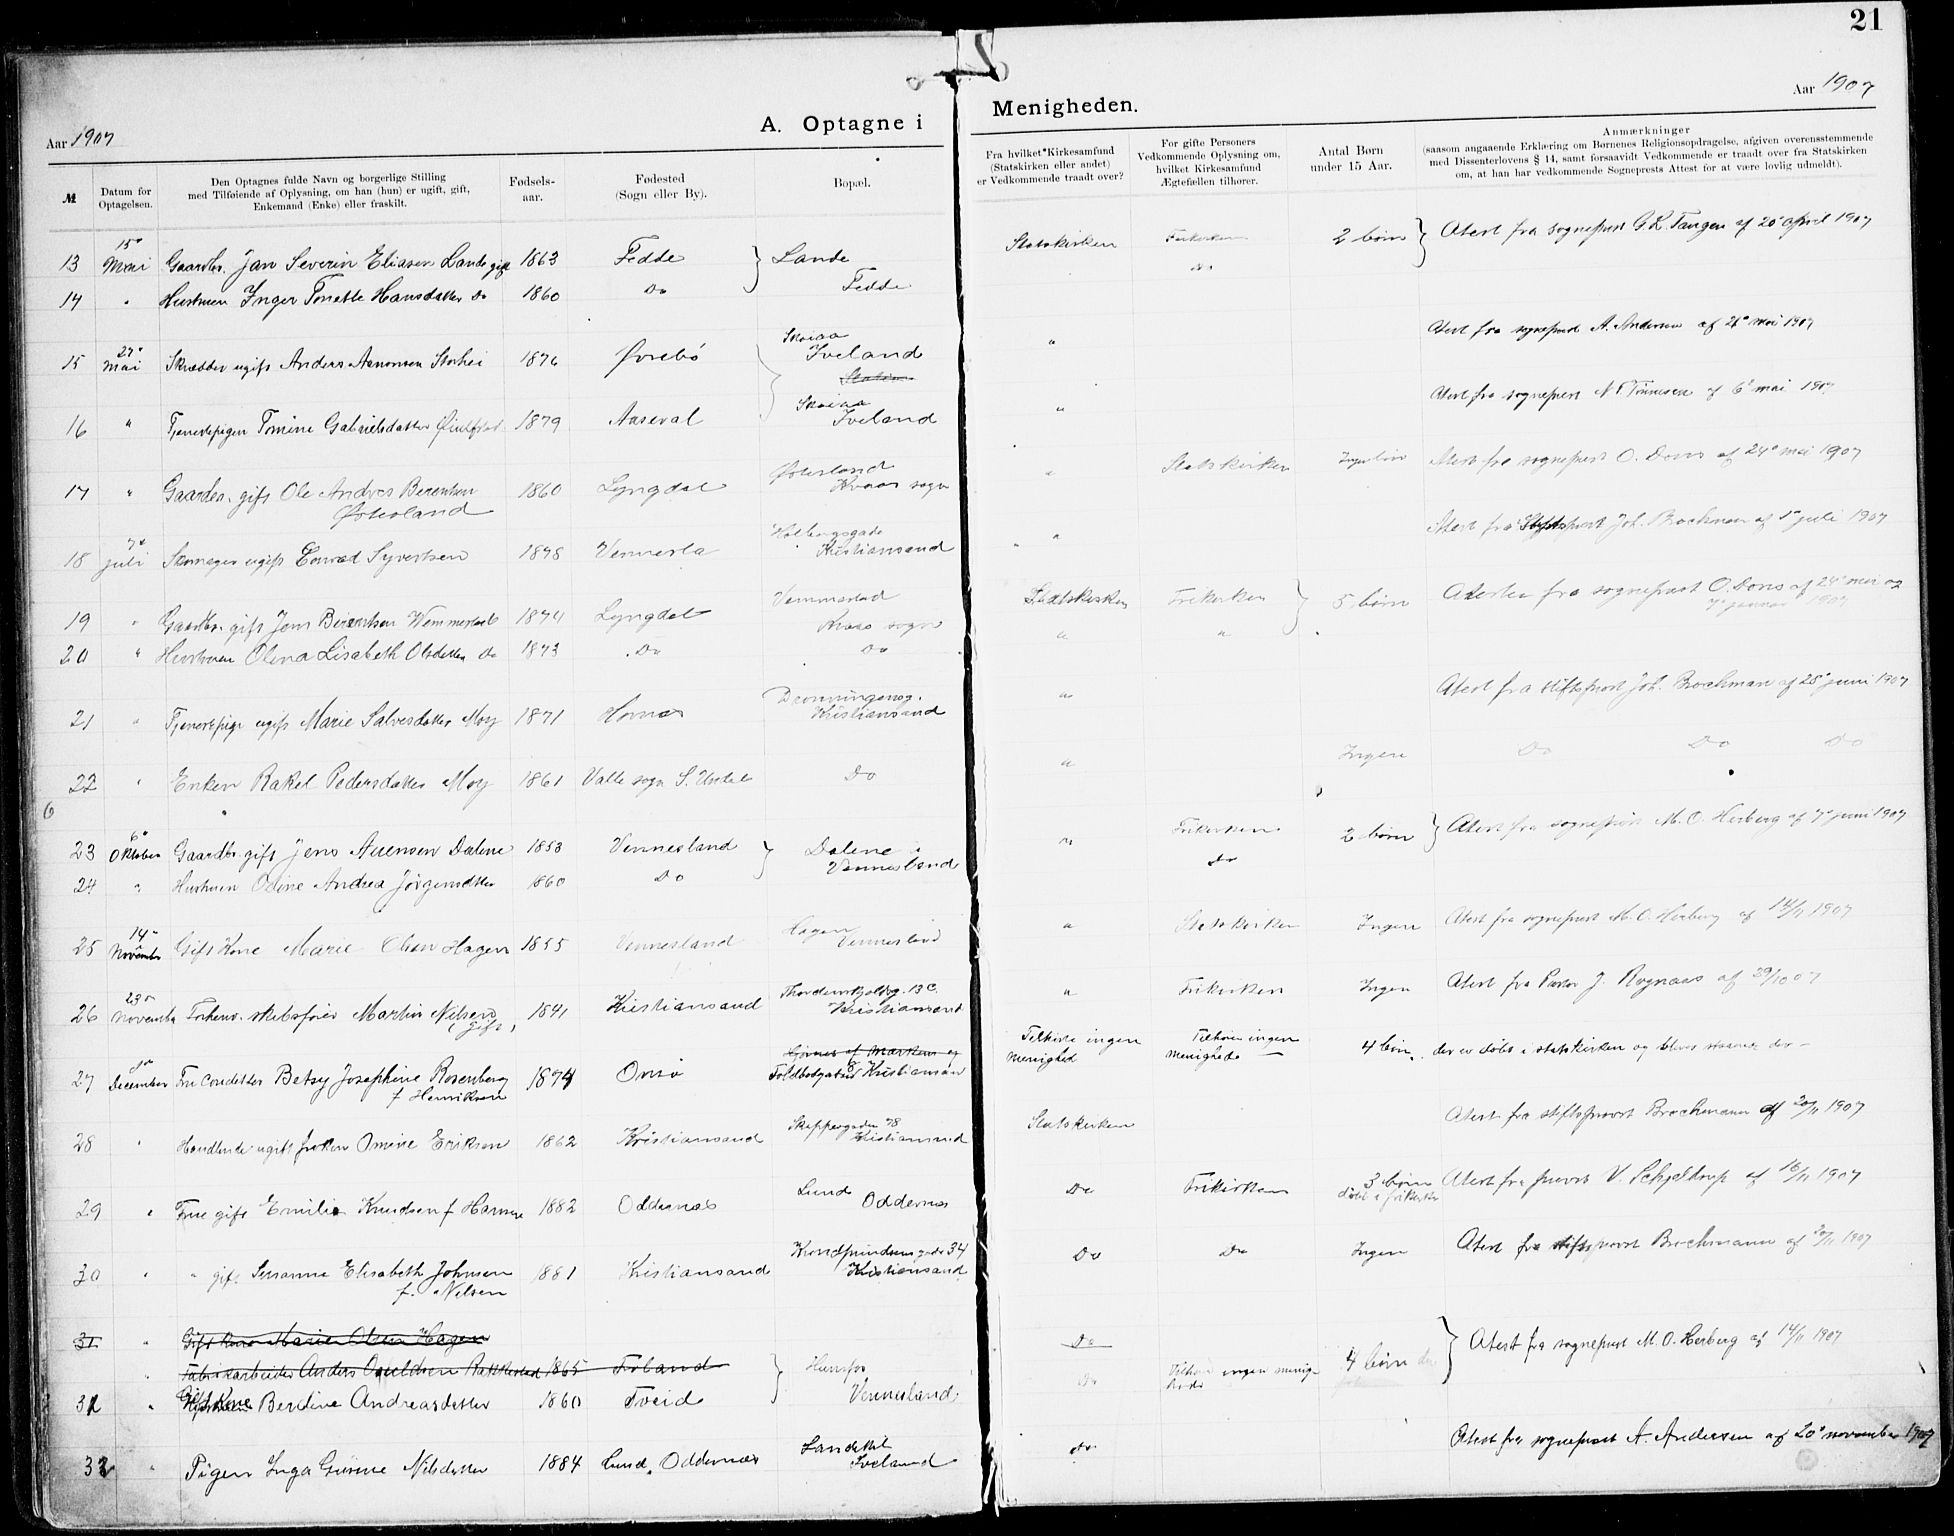 21
Aar 1907
A. Optagne i
Menigheden.
Aar 1907
№
Datum for Optagelsen.
Den Optagnes fulde Navn og borgerlige Stilling
med Tilføiende af Oplysning, om han (hun) er ugift, gift,
Enkemand (Enke) eller fraskilt.
Fødsels-
aar.
Fødested
(Sogn eller By).
Bopæl.
Fra hvilket Kirkesamfund
(Statskirken eller andet)
er Vedkommende traadt over?
For gifte Personers
Vedkommende Oplysning om,
hvilket Kirkesamfund
Ægtefællen tilhører.
Antal Børn
under 15 Aar.
Anmærkninger
(saasom angaaende Erklæring om Børnenes Religionsopdragelse, afgiven overensstemmende
med Dissenterlovens § 14, samt forsaavidt Vedkommende er traadt over fra Statskirken
om, at han har vedkommende Sogneprests Attest for at være lovlig udmeldt).
13 15de Mai Gaardbr. Jan Severin Eliasen Lande gift 1863 Fedde } Lande Statskirken Frikirken 2 børn } Atest fra sognepest G. K. Tangen af 20de April 1907
14 " Hustruen Inger Tonette Hansdatter Do 1860 Do Fedde Do
15 27de Mai Skrædder ugift Anders Aanonsen Storhei 1876 Øvrebø Skaiaa Iveland " Atest fra sognepest A. Andersen af 21de mai 1907
16 " Tjenestepigen Tomine Gabrielsdatter 1879 Aaseral Skaiaa Iveland " Atest fra sognepest af 6de mai 1907
17 " Gaardbr. gift Ole Andres Berentsen 1860 Lyngdal Østerland " Statskirken Ingen børn Atest fra sognepest O. Dons af 24de mai 1907
Østerland Kvaas sogn
18 7de juli Skomager ugift Conrad Syvertsen 1878 Vennesla Holbergsgade Kristiansand " Atest fra Stiftsprost Joh. Brochman af 1de juli 1907
19 " Gaardbr. gift Jens Berentsen Vemmestad 1874 Lyngdal Vemmestad Statskirken Frikirken } 5 børn Atester fra sognepest O. Dons af 24de mai og
Kvaas sogn 7de januar 1907
20 " Hustruen Olena Lisabeth Olsdatter Do 1873 Do Do " "
21 " Tjenestepige ugift Marie Salvesdatter Moy 1871 Hornæs Dronningensg. Kristiansand " Atest fra stiftsprost Joh. Brochman af 28de juni 1907
22 " Enken Rakel Pedersdatter Moy 1861 Valle sogn S. Undal Do " Ingen Do Do Do
6
23 6de Oktober Gaardbr. gift Jens Auensen Dalene 1853 Vennesland } Dalene i " Frikirken 2 børn } Atest fra sogneprest M. O. Herberg af 7de juni 1907
24 " Hustruen Odine Andrea Jørgensdatter 1860 Do Vennesland Do
25 14de November Gift Kone Marie Olsen Hagen 1855 Vennesland Hagen Vennesland " Statskirken Ingen Atest fra sognepest M. O. Herberg af 14/11 1907
26 23de November Forhenv. skibsfører Martin Nilsen (Gift) 1841 Kristiansand Thordenskjoldsg. 13 C. Kristiansand " Frikirken Ingen Atest fra Pastor J. Rognaas af 29/10 07
27 December Fru Betsy Josephine Rosenberg 1874 Onsø af Markens Toldbodgaden Kristiansand Tilhører ingen Menighed Tilhører ingen Menighed 4 børn, der er døbt i statskirken og blive staaende der —
f. Henriksen
28 " Handlende ugift frøken Omine Eriksen 1862 Kristiansand Skippergaden 78 Kristiansand Statskirken Atest fra stiftsprovst Brochmann af 20/11 1907
29 " Frue gift Emilie Knudsen f. 1882 Oddernæs Lund Oddernæs Do Frikirken 3 børn døbt i frikirken Atest fra provst V. Schjeldrup af 16/11 1907
30 " " gift Susanne Elisabeth Johnsen 1881 Kristiansand Kronprindsens gade 34 Kristiansand Do Do Ingen Atest fra stiftsprovst Brochmann af 20/11 1907
f. Nilsen
31 " Gift Kone Marie Olsen Hagen Do
" Fabrikarbeider Anders 1865 Froland } Hunsfos Do Tilhører ingen menighed 4 børn } Atest fra sognepest M. O. Herberg af 14/11 1907
31 " Gift Kone Berdine Andreasdatter 1860 Tveid Vennesland
32 " Pigen Inga Gurine Nilsdatter 1884 Lund, Oddernæs Iveland do Atest fra sogneprest A. Andersen af 20de november 1907